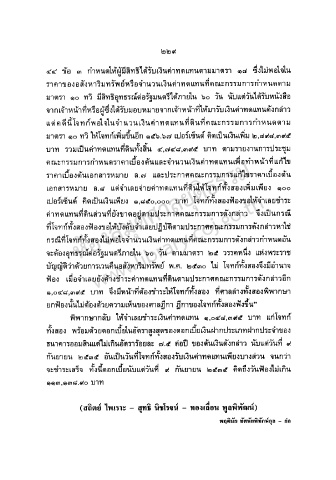 ๒๒๙
๔๔ ข้อ ๓ กำหนดให้ผู้มีสิทธิได้รับเงินค่าทดแทนตามมาตรา ๑๘ ซึ่งไม่พอใจใน
ราคาของอสังหาริมทรัพย์หรือจำนวนเงินค่าทดแทนที่คณะกรรมการกำหนดตาม
มาตรา ๑๐ ทวิ มีสิทธิอุทธรณ์ต่อรัฐมนตรีได้ภายใน ๖๐ วัน นับแต่วันได้รับหนังสือ
จากเจ้าหน้าที่หรือผู้ซึ่งได้รับมอบหมายจากเจ้าหน้าที่ให้มารับเงินค่าทดแทนดังกล่าว
แต่คดีนี้โจทก์พอใจในจำนวนเงินค่าทดแทนที่คณะกรรมการกำหนดตาม
มาตรา ๑๐ ทวิ ให้โจทก์เพิ่มขึ้นอีก ๑๕๖.๖๗ เปอร์เซ็นต์ คิดเป็นเงินเพิ่ม ๒,๘๙๘,๓๙๕
บาท รวมเป็นค่าทดแทนที่ดินทั้งสิ้น ๔,๗๔๘,๓๙๕ บาท ตามรายงานการประชุม
คณะกรรมการกำหนดราคาเบื้องต้นและจำนวนเงินค่าทดแทนเพื่อทำหน้าที่แก้ไข
ราคาเบื้องต้นเอกสารหมาย ล.๗ และประกาศคณะกรรมการแก้ไขราคาเบื้องต้น
เอกสารหมาย ล.๘ แต่จำเลยจ่ายค่าทดแทนที่ดินให้โจทก์ทั้งสองเพิ่มเพียง ๑๐๐
เปอร์เซ็นต์ คิดเป็นเงินเพียง ๑,๘๕๐,๐๐๐ บาท โจทก์ทั้งสองฟ้องขอให้จำเลยชำระ
ค่าทดแทนที่ดินส่วนที่ยังขาดอยู่ตามประกาศคณะกรรมการดังกล่าว จึงเป็นกรณี
ที่โจทก์ทั้งสองฟ้องขอให้บังคับจำเลยปฏิบัติตามประกาศคณะกรรมการดังกล่าวหาใช่
กรณีที่โจทก์ทั้งสองไม่พอใจในจำนวนเงินค่าทดแทนที่คณะกรรมการดังกล่าวกำหนดอัน
จะต้องอุทธรณ์ต่อรัฐมนตรีภายใน ๖๐ วัน ตามมาตรา ๒๕ วรรคหนึ่ง แห่งพระราช
บัญญัติว่าด้วยการเวนคืนอสังหาริมทรัพย์ พ.ศ. ๒๕๓๐ ไม่ โจทก์ทั้งสองจึงมีอำนาจ
ฟ้อง เมื่อจำเลยยังค้างชำระค่าทดแทนที่ดินตามประกาศคณะกรรมการดังกล่าวอีก
๑,๐๔๘,๓๙๕ บาท จึงมีหน้าที่ต้องชำระให้โจทก์ทั้งสอง ที่ศาลล่างทั้งสองพิพากษา
ยกฟ้องนั้นไม่ต้องด้วยความเห็นของศาลฎีกา ฎีกาของโจทก์ทั้งสองฟังขึ้น"
พิพากษากลับ ให้จำเลยชำระเงินค่าทดแทน ๑,๐๔๘,๓๙๕ บาท แก่โจทก์
ทั้งสอง พร้อมด้วยดอกเบี้ยในอัตราสูงสุดของดอกเบี้ยเงินฝากประเภทฝากประจำของ
ธนาคารออมสินแต่ไม่เกินอัตราร้อยละ ๗.๕ ต่อปี ของต้นเงินดังกล่าว นับแต่วันที่ ๙
กันยายน ๒๕๓๕ อันเป็นวันที่โจทก์ทั้งสองรับเงินค่าทดแทนเพียงบางส่วน จนกว่า
จะชำระเสร็จ ทั้งนี้ดอกเบี้ยนับแต่วันที่ ๙ กันยายน ๒๕๓๕ คิดถึงวันฟ้องไม่เกิน
๑๑๓,๑๓๘.๙๐ บาท
(สถิตย์ ไพเราะ - สุทธิ นิชโรจน์ - ทองเลื่อน พูลพิพัฒน์)